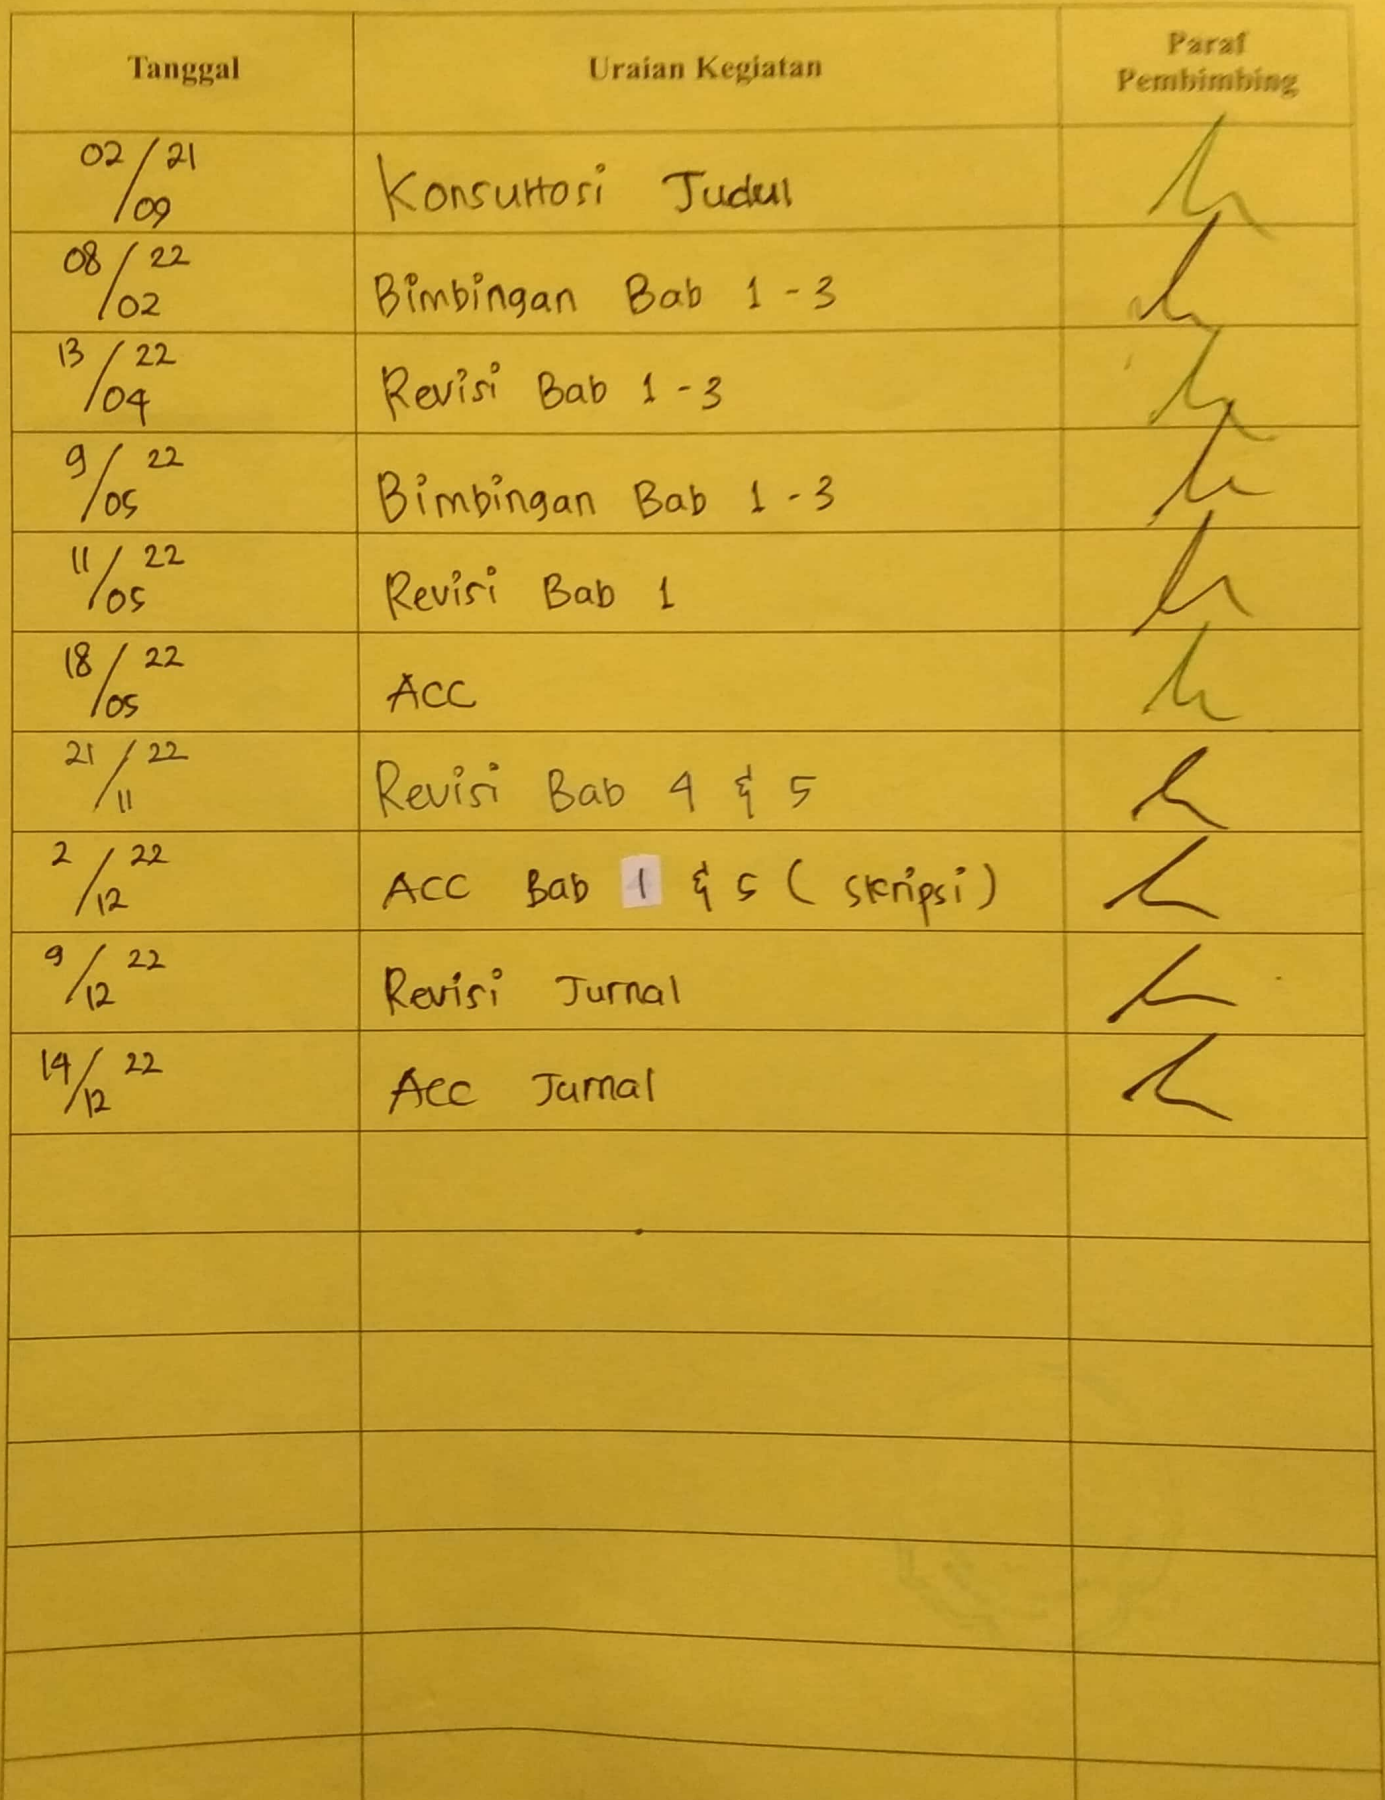 Tanggal Uraian Kegiatan Paraf Pembimbing
02/09 21 Konsultasi Judul
08/02 22 Bimbingan Bab 1 - 3
13/04 22 Revisi Bab 1 - 3
9/05 22 Bimbingan Bab 1 - 3
11/05 22 Revisi Bab 1
18/05 22 ACC
21/11 22 Revisi Bab 4 & 5
2/12 22 ACC Bab 1 & 5 ( skripsi )
9/12 22 Revisi Jurnal
14/12 22 Acc Jurnal